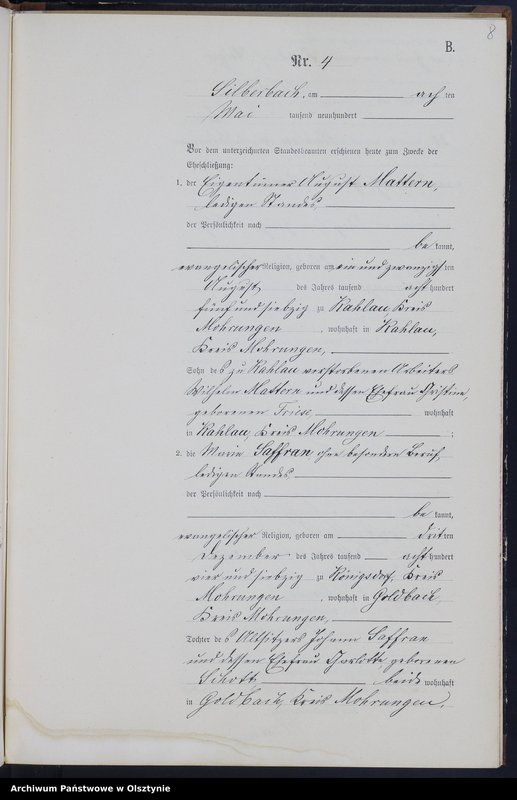 8
B.
Nr. 4
Silberbach, am achten
Mai tausend neunhundert
Vor dem unterzeichneten Standesbeamten erschienen heute zum Zwecke der
Eheschließung:
1. der Eigentümer August Mattern,
ledigen Standes,
der Persönlichkeit nach
bekannt,
evangelischer Religion, geboren am ein und zwanzigsten
August des Jahres tausend achthundert
fünf und siebzig zu Kahlau, Kreis
Mohrungen, wohnhaft in Kahlau,
Kreis Mohrungen,
Sohn des zu Kahlau verstorbenen Arbeiters
Wilhelm Mattern und dessen Ehefrau Christine,
geborenen Friese, wohnhaft
in Kahlau, Kreis Mohrungen;
2. die Marie Saffran, ohne besondern Beruf,
ledigen Standes
der Persönlichkeit nach
bekannt,
evangelischer Religion, geboren am dritten
Dezember des Jahres tausend achthundert
vier und siebzig zu Königsdorf, Kreis
Mohrungen, wohnhaft in Goldbach,
Kreis Mohrungen,
Tochter des Altsitzers Johann Saffran
und dessen Ehefrau Charlotte, geborenen
Schott beide wohnhaft
in Goldbach, Kreis Mohrungen.
Archiwum Państwowe w Olsztynie